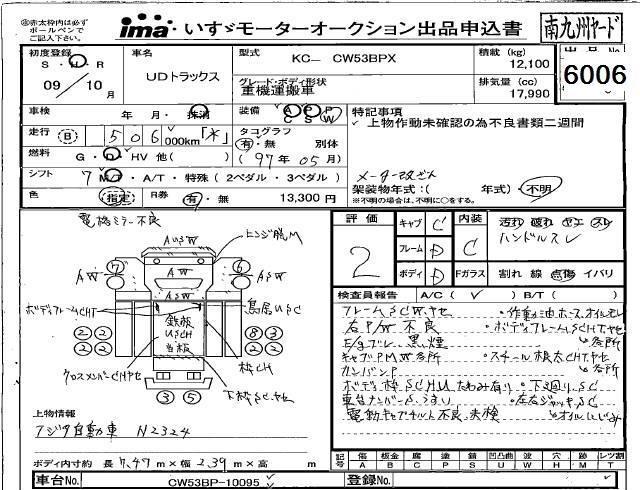 ※赤太枠内は必ず
ボールペンで
ご記入下さい。
ima いすゞモーターオークション出品申込書
南九州ヤード
初度登録
S・H・R
09/10月
車名
UDトラックス
型式
KC― CW53BPX
積載 (kg)
12,100
出品No
6006
グレード・ボディ形状
重機運搬車
排気量 (cc)
17,990
車検 年 月・抹消
装備 A P P
C S W
特記事項
✓上物作動未確認の為不良書類二週間
走行 (B) 506,000km「*」
タコグラフ
有・無 別体
(97年05月)
燃料 G・D・HV 他( )
シフト 7 M/T・A/T・特殊(2ペダル・3ペダル)
メーター改ざん
架装物年式:( 年式)・不明
※不明の場合は、不明に○をする。
色 指定 R券 有・無 13,300円
電格ミラー不良
評価
2
キャブ C
フレーム D
ボディ D
内装
C
Fガラス
汚れ 破れ ヤニ スレ
ハンドルスレ
割れ 線 点傷 イバリ
検査員報告 A/C(✓) B/T( )
フレームSCWサセ
・作動油ホースオイルモレ
右P/W不良
・ボディフレームUSCHTサセ
各所
E/gブレ、黒煙
キャブPMW各所
・スチール板太CHTサセ
各所
カンバンP
ボディ枠SCHUたわみ有り・下廻りSC
・左右ジャッキSC
電動キャブチルト不良、未検
・オイルにじみ
AUSW
ヒンジ脱M
AW
AW
⑦
⑥
ボディフレームCHT
鳥居USC
鉄板
USCH
当板
②②
②②
⑧③
②②
枠CH
クロスメンバーCHサセ
下枠SCサセ
③⑤
上物情報
フジタ自動車 N2324
ボディ内寸約 長 7.47 m×幅 2.39 m×高 m
記号
傷 板金 腐 塗 錆 凹凸曲 波 穴 跡 レツ割
A B C P S U W H M T
車台No. CW53BP-10095
登録No.